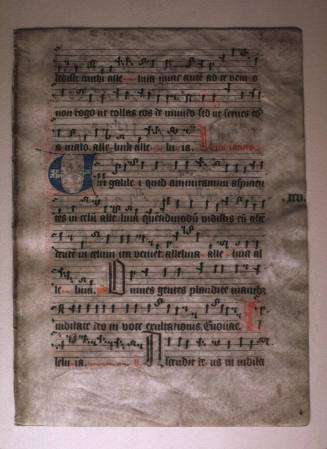 dedisti michi alle luia nunc aute ad te veni o
non rogo ut tollas eos de mundo sed ut serves eos
a malo. alle luia alle lu ia.
Viri galilei quid ammiramini aspicien
tes in celu alle luia quemadmodu vidistis eu asce
dente in celum ita veniet. alleluia alle luia al
le luia. Omnes gentes plaudite manibz
iubilate deo in voce exultationis. Euouae.
lelu ia. Ascendit de us in iubila
xvi.